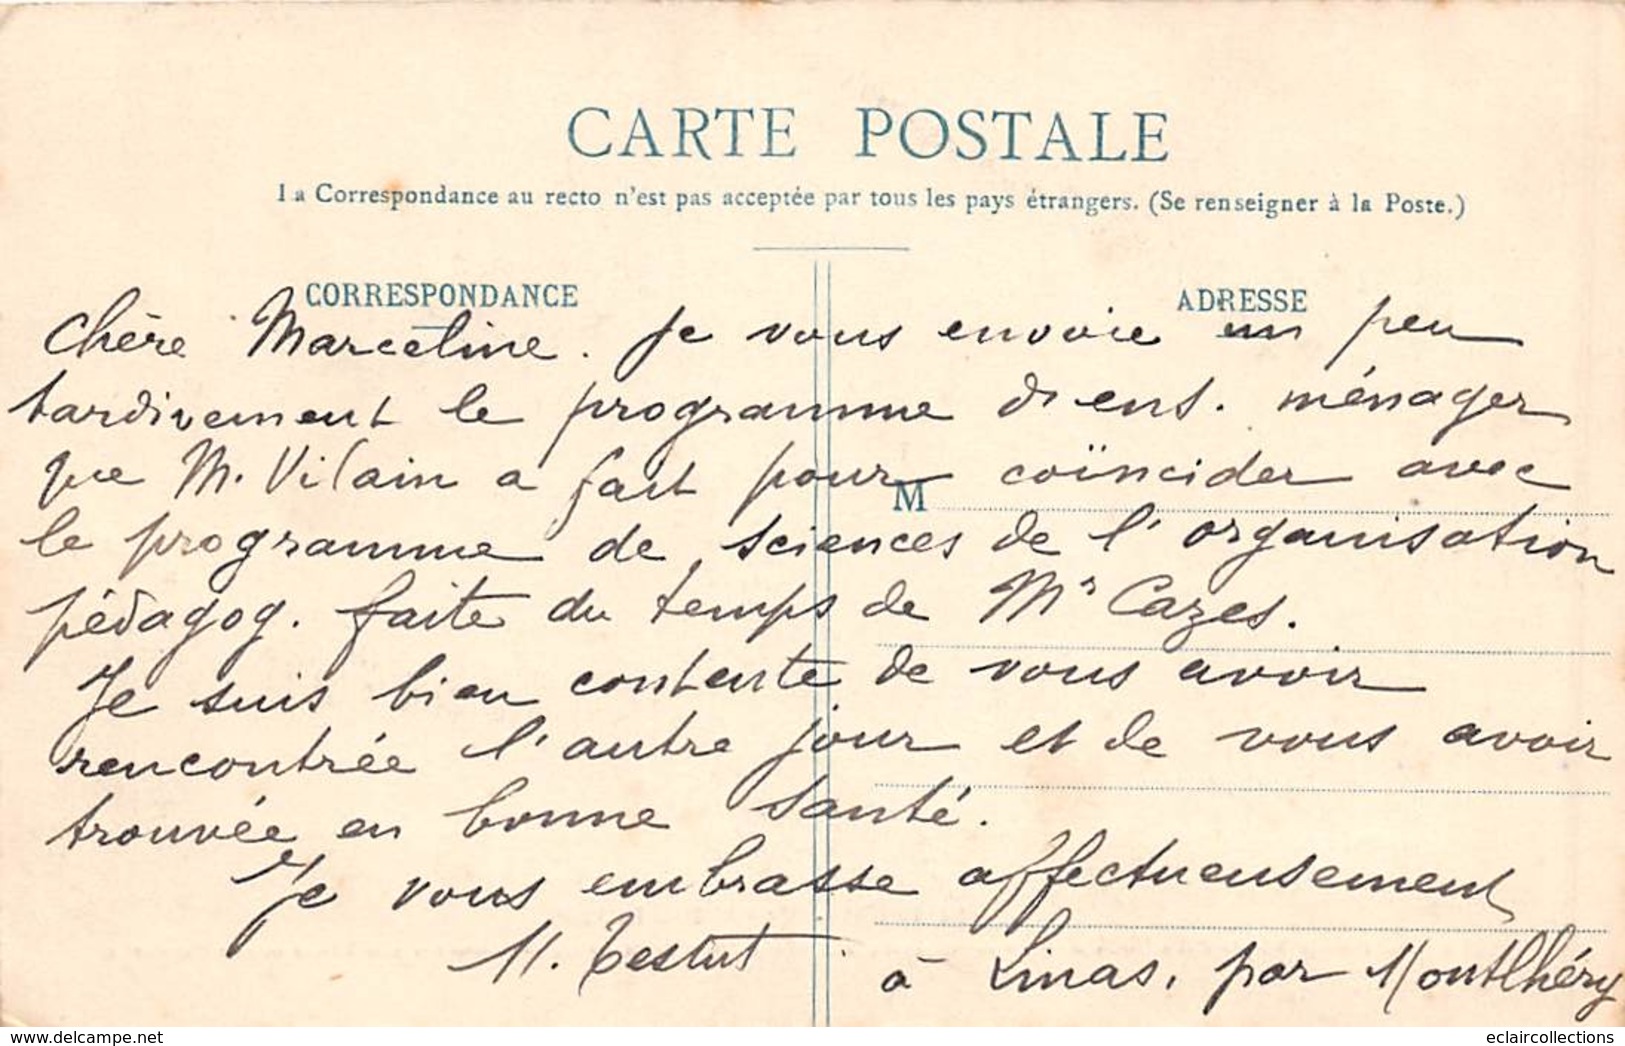 CARTE POSTALE
La Correspondance au recto n'est pas acceptée par tous les pays étrangers. (Se renseigner à la Poste.)
CORRESPONDANCE
ADRESSE
Chère Marceline. Je vous envoie un peu
tardivement le programme d'ens. ménager
que M. Vilain a fait pour coïncider avec
M
le programme de sciences de l'organisation
pédagog. faite du temps de Mr Cazes.
Je suis bien contente de vous avoir
rencontrée l'autre jour et de vous avoir
trouvée en bonne santé.
Je vous embrasse affectueusement
M. Testut
à Linas, par Montlhéry
www.delcampe.net
eclaircollections